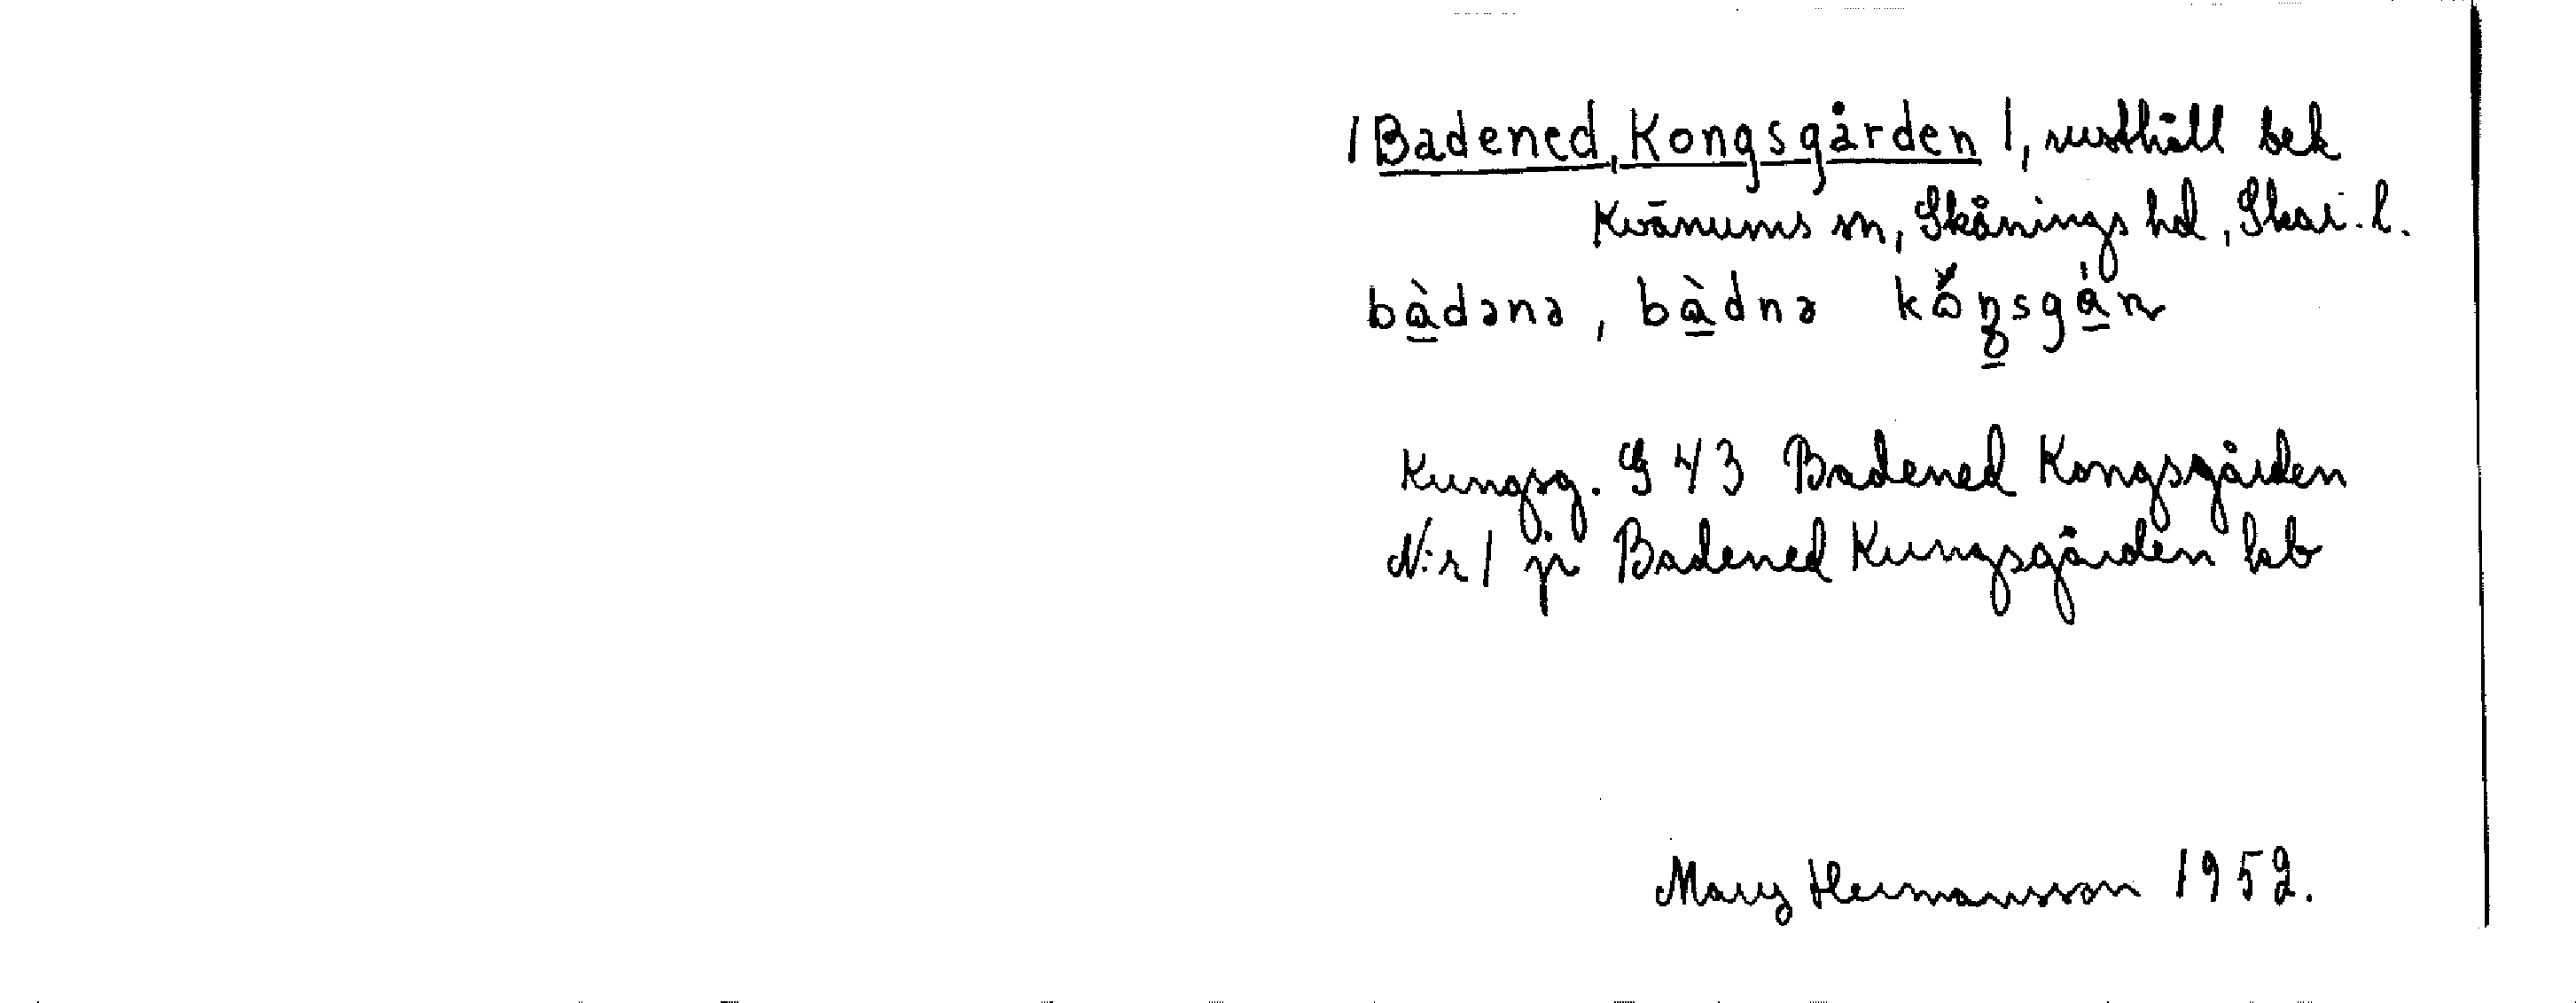 /Badened, Kongsgården/, rusthåll bek
Kvänums sn, Skånings hd, Skar. l.
bàdənə, bàdnə
Kungsg. G 43 Badened Kongsgården
N:r 1 jr Badened Kungsgården kb
Mary Hermansson 1952.